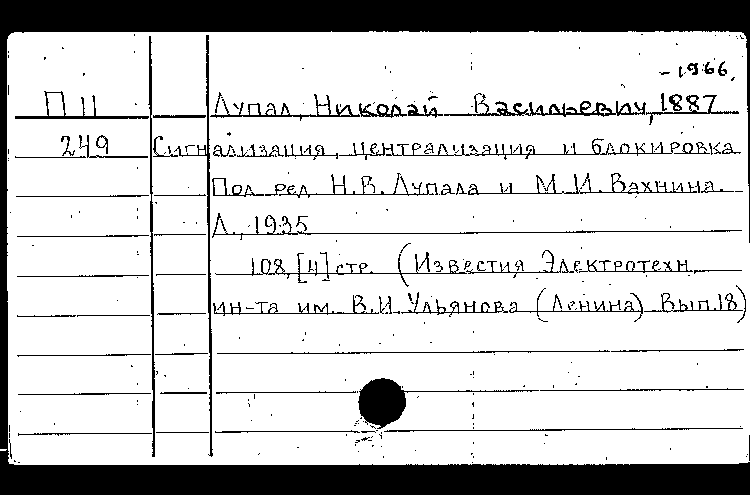 -1966.
П 11 Лупал, Николай Васильевич, 1887
249 Сигнализация, централизация и блокировка
Под ред. Н.В. Лупала и М.И. Вахнина.
Л., 1935
108, [4] стр. (Известия Электротехн.
ин-та им. В.И. Ульянова (Ленина) Вып.18)